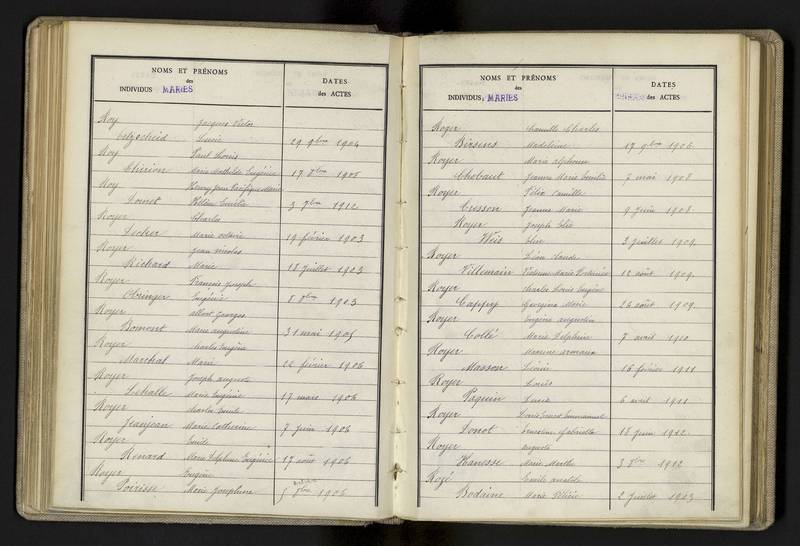 NOMS ET PRÉNOMS
des
INDIVIDUS MARIÉS
DATES
des ACTES
Roy Jacques Victor
Louise 29 9bre 1904
Roy Paul Louis
Thirion Marie Mathilde Eugénie 17 1905
Roy Henry Jean Pacifique Marie
Donot Hélène Emilie 3 7bre 1912
Royer Charles
Marie 19 février 1903
Royer Jean Nicolas
Richard Marie 18 juillet 1903
Royer François Joseph
Obringer Eugénie 8 8bre 1903
Royer Albert Georges
Bomont Marie Augustine 31 mai 1905
Royer Charles Eugène
Marchal Marie 22 février 1906
Royer Joseph Auguste
Lehalle Marie Eugénie 17 mars 1906
Royer Charles Emile
Jeanjean Marie Catherine 7 juin 1906
Royer Emile
Renard Marie Delphine Eugénie 17 août 1906
Royer Eugène
Poirisse Marie Joséphine 5 8bre 1906
NOMS ET PRÉNOMS
des
INDIVIDUS MARIÉS
DATES
des ACTES
Royer Camille Charles
Birsens Madeleine 17 9bre 1906
Royer Marie Alphonse
Chobaut Jeanne Marie 2 mai 1908
Royer Félix Camille
Cusson Jeanne Marie 9 juin 1908
Royer Joseph
Weis 3 juillet 1909
Royer Léon Claude
Villemain Marie 12 août 1909
Royer Charles Louis Eugène
Cappy Georgina Marie 26 août 1909
Royer Eugène Augustin
Collé Marie Delphine 7 avril 1910
Royer
Masson 16 février 1911
Royer Louis
Paquin 6 avril 1911
Royer Louis Emmanuel
Donot Gabrielle 18 juin 1912
Royer Auguste
Hanesse Marie Marthe 3 8bre 1912
Emile
Bodaine Marie 2 juillet 1903